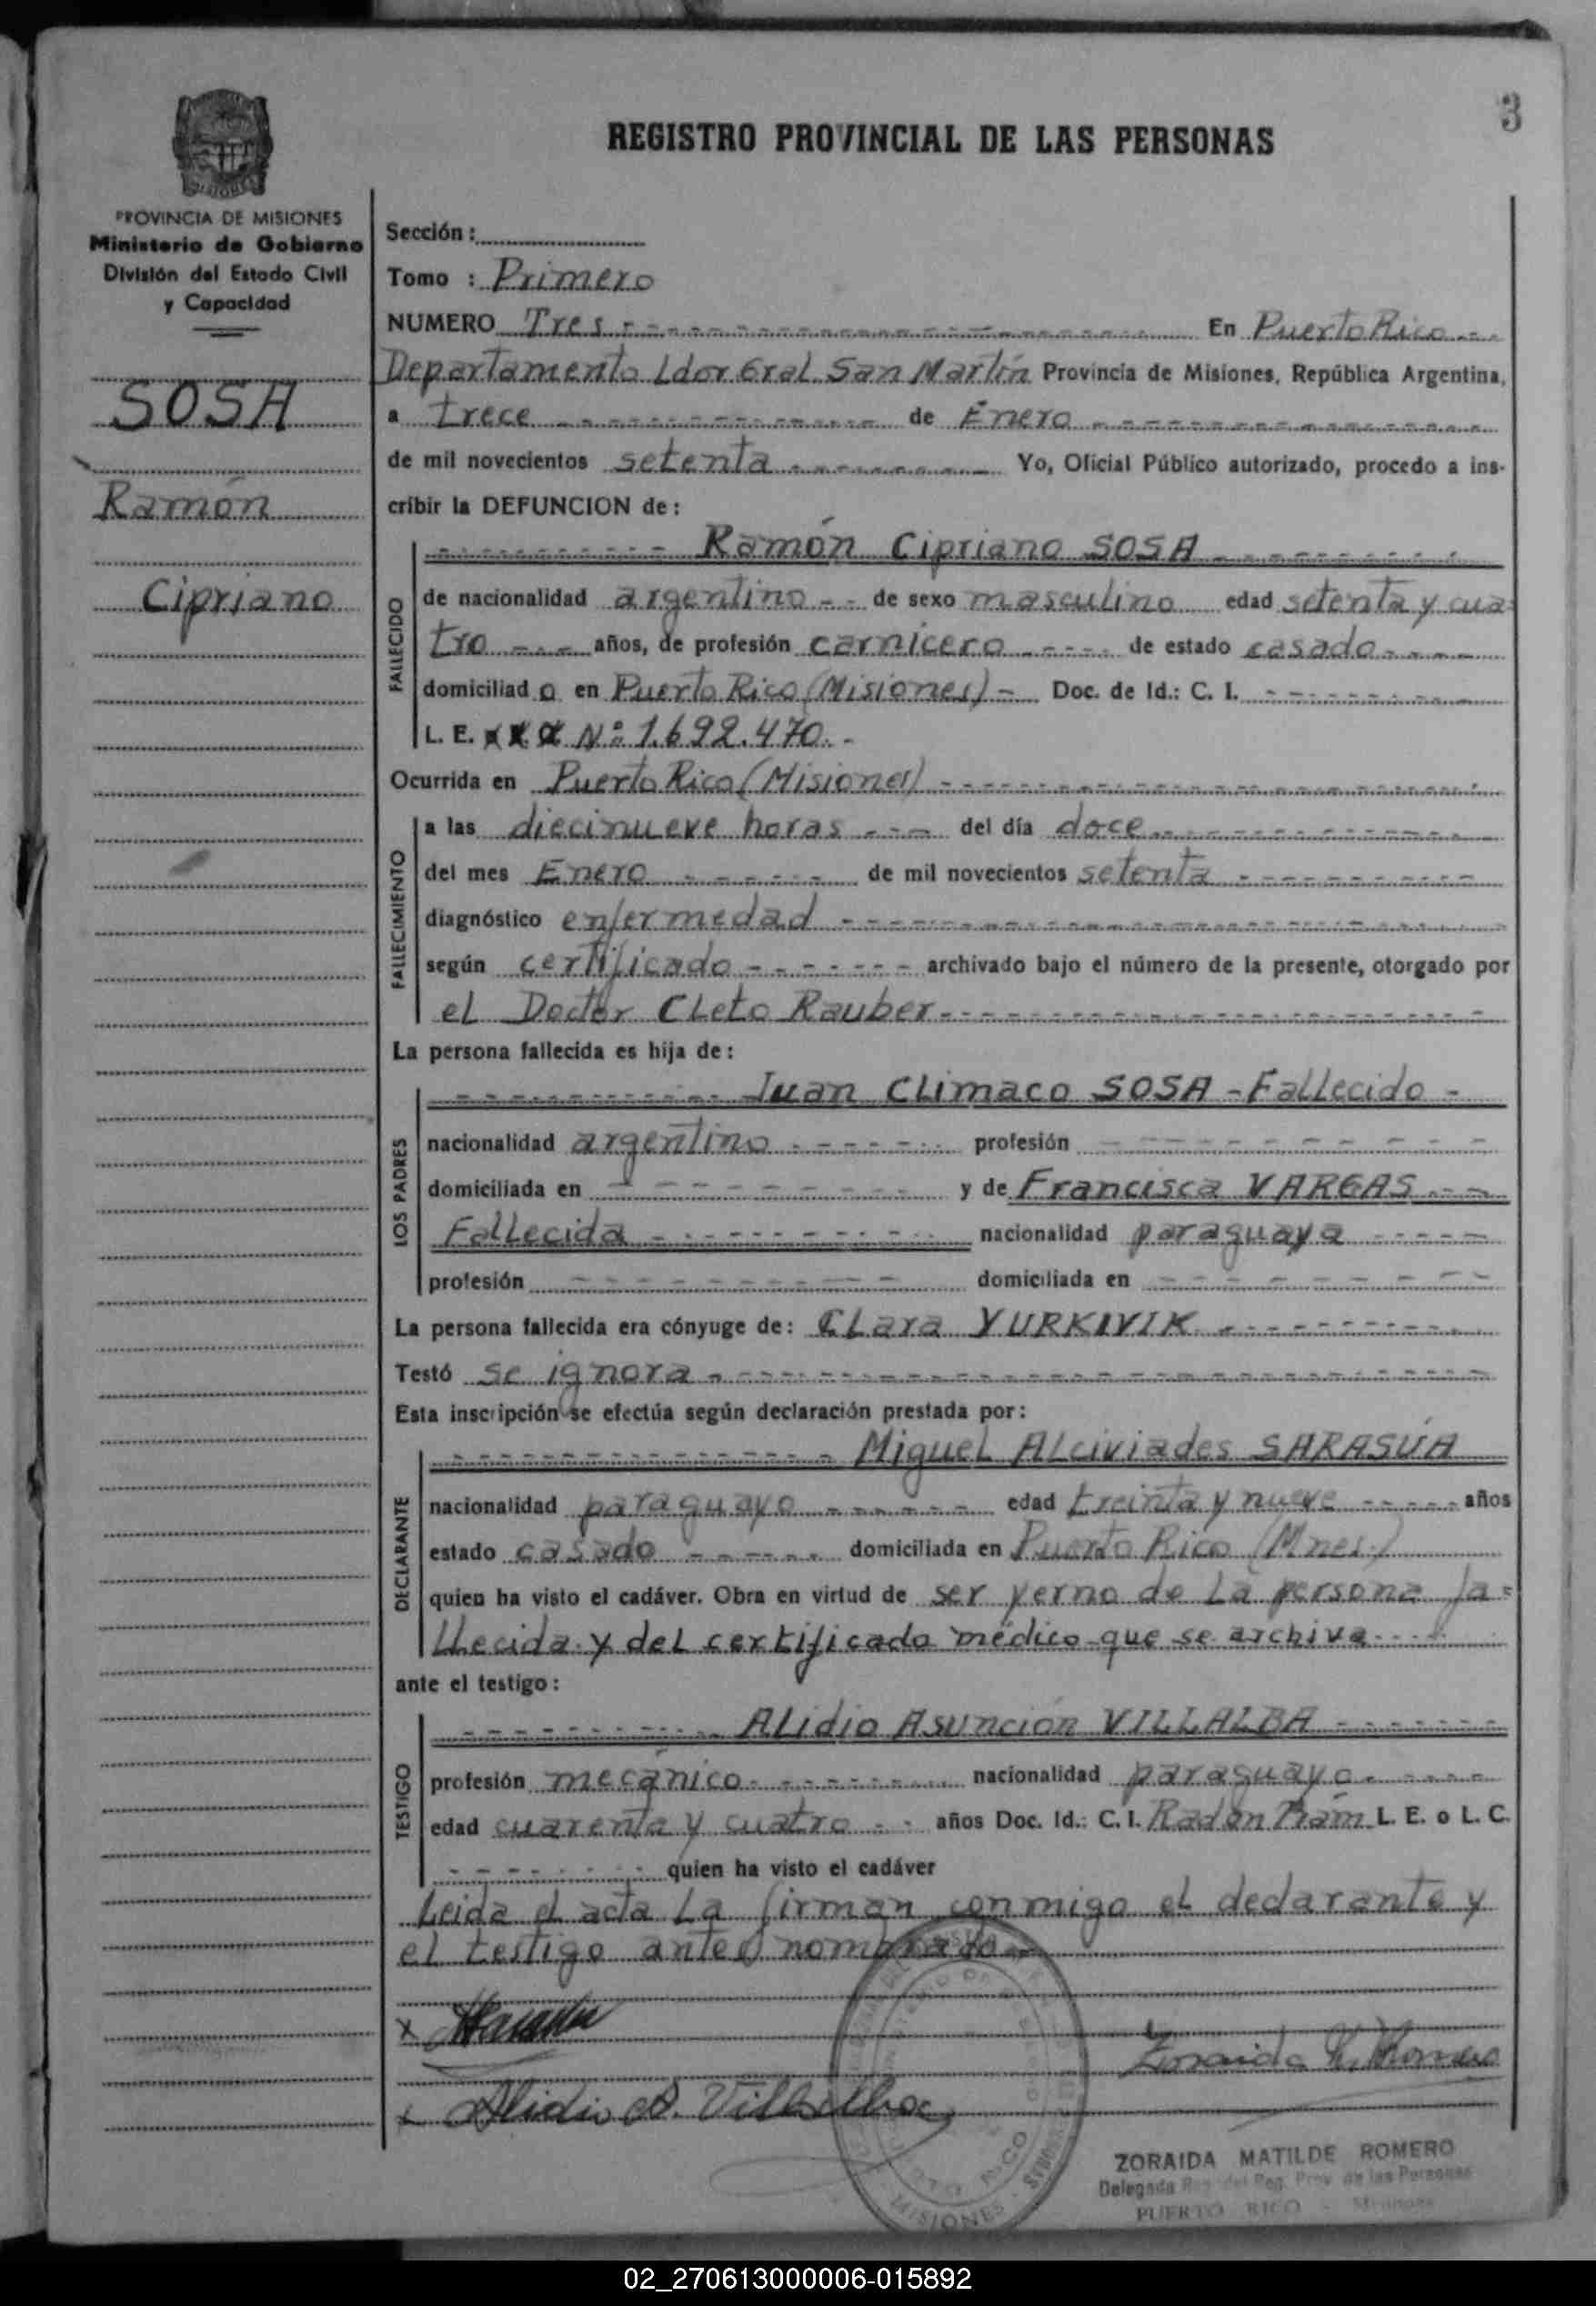 3
REGISTRO PROVINCIAL DE LAS PERSONAS
MISIONES
PROVINCIA DE MISIONES
Ministerio de Gobierno
División del Estado Civil
y Capacidad
SOSA
Ramón
Cipriano
Sección :
Tomo : Primero
NUMERO Tres En Puerto Rico
Departamento Ldor Gral San Martín Provincia de Misiones, República Argentina,
a trece de Enero
de mil novecientos setenta Yo, Oficial Público autorizado, procedo a ins-
cribir la DEFUNCION de :
FALLECIDO
Ramón Cipriano SOSA
de nacionalidad argentino de sexo masculino edad setenta y cua=
tro años, de profesión carnicero de estado casado
domiciliad o en Puerto Rico (Misiones) Doc. de Id.: C. I.
L. E. Nº 1.692.470.-
Ocurrida en Puerto Rico (Misiones)
FALLECIMIENTO
a las diecinueve horas del día doce
del mes Enero de mil novecientos setenta
diagnóstico enfermedad
según certificado archivado bajo el número de la presente, otorgado por
el Doctor Cleto Rauber
La persona fallecida es hija de :
LOS PADRES
Juan Climaco SOSA - Fallecido -
nacionalidad argentino profesión
domiciliada en y de Francisca VARGAS
Fallecida nacionalidad paraguaya
profesión domiciliada en
La persona fallecida era cónyuge de : Clara YURKIVIK
Testó se ignora
Esta inscripción se efectúa según declaración prestada por :
DECLARANTE
Miguel Alciviades SARASÚA
nacionalidad paraguayo edad treinta y nueve años
estado casado domiciliada en Puerto Rico (Mnes.)
quien ha visto el cadáver. Obra en virtud de ser yerno de la persona fa=
llecida y del certificado médico que se archiva
ante el testigo :
TESTIGO
Alidio Asunción VILLALBA
profesión mecánico nacionalidad paraguayo
edad cuarenta y cuatro años Doc. Id.: C. I. L. E. o L. C.
quien ha visto el cadáver
Leida el acta la firman conmigo el declarante y
el testigo antes nombrado
x
Zoraida M. Romero
x Alidio A. Villalba
MISIONES
ZORAIDA MATILDE ROMERO
Delegada del Reg. Prov. de las Personas
PUERTO RICO - Misiones
02_270613000006-015892